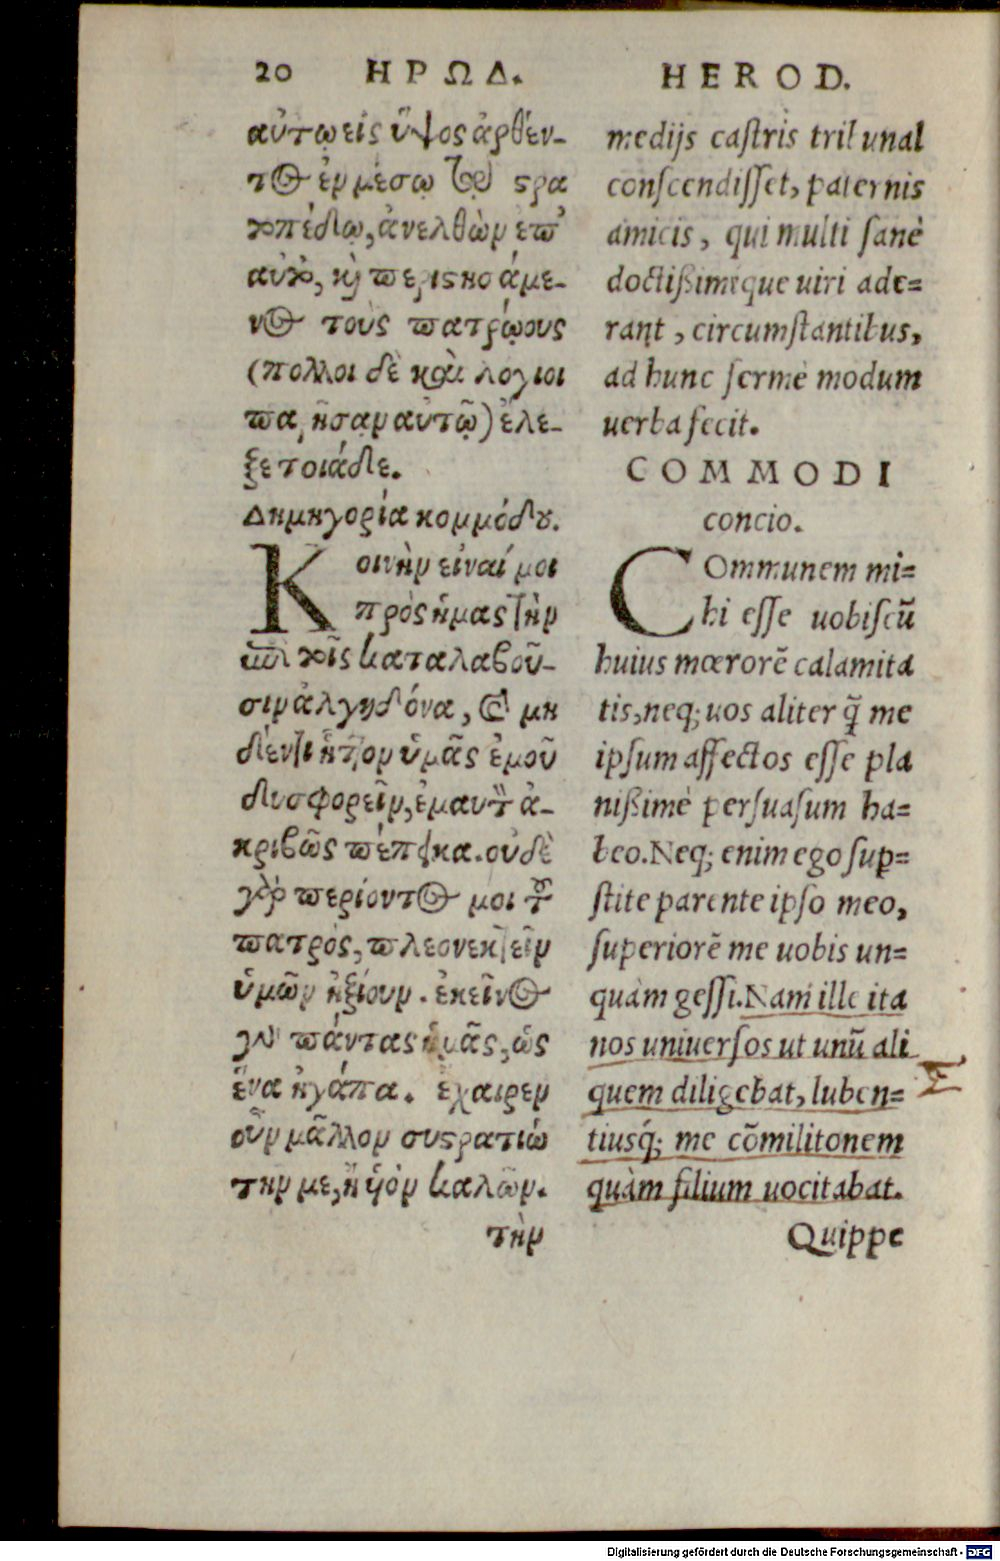 20 ΗΡΩΔ.
αὐτῳ εἰς ὕψος ἀρθέν-
τος ἐν μέσῳ τῷ στρα
τοπέδῳ, ἀνελθὼν ἐπ'
αὐτό, καὶ περιστησάμε-
νος τοὺς πατρῴους
(πολλοι δὲ καὶ λόγιοι
παρῆσαν αὐτῷ) ἔλε-
ξε τοιάδε.
Δημηγορία κομμόδου.
Κοινὴν εἶναί μοι
πρὸς ἡμας τὴν
ἐπὶ τοῖς καταλαβοῦ-
σιν ἀλγηδόνα, καὶ μη
δὲν τι ἧττον ὑμᾶς ἐμοῦ
δυσφορεῖν, ἐμαυτὸν ἀ-
κριβῶς πέπεικα. οὐδὲ
γὰρ περίοντος μοι τοῦ
πατρός, πλεονεκτεῖν
ὑμῶν ἠξίουν. ἐκεῖνος
γὰρ πάντας ἡμᾶς, ὡς
ἕνα ἠγάπα. ἔχαιρεν
οὖν μᾶλλον συστρατιώ
την με, ἢ υἱὸν καλῶν.
τὴν
HEROD.
medijs castris tribunal
conscendisset, paternis
amicis, qui multi sanè
doctißimique uiri ade=
rant, circumstantibus,
ad hunc fermè modum
uerba fecit.
COMMODI
concio.
COmmunem mi=
hi esse uobiscũ
huius mœrorẽ calamita
tis, neq; uos aliter q̃ me
ipsum affectos esse pla
nißimè persuasum ha=
beo. Neq; enim ego sup=
stite parente ipso meo,
superiorẽ me uobis un=
quàm gessi. Nam ille ita
nos uniuersos ut unũ ali
quem diligebat, luben=
tiusq́; me cõmilitonem
quàm filium uocitabat.
Quippe
Digitalisierung gefördert durch die Deutsche Forschungsgemeinschaft - DFG